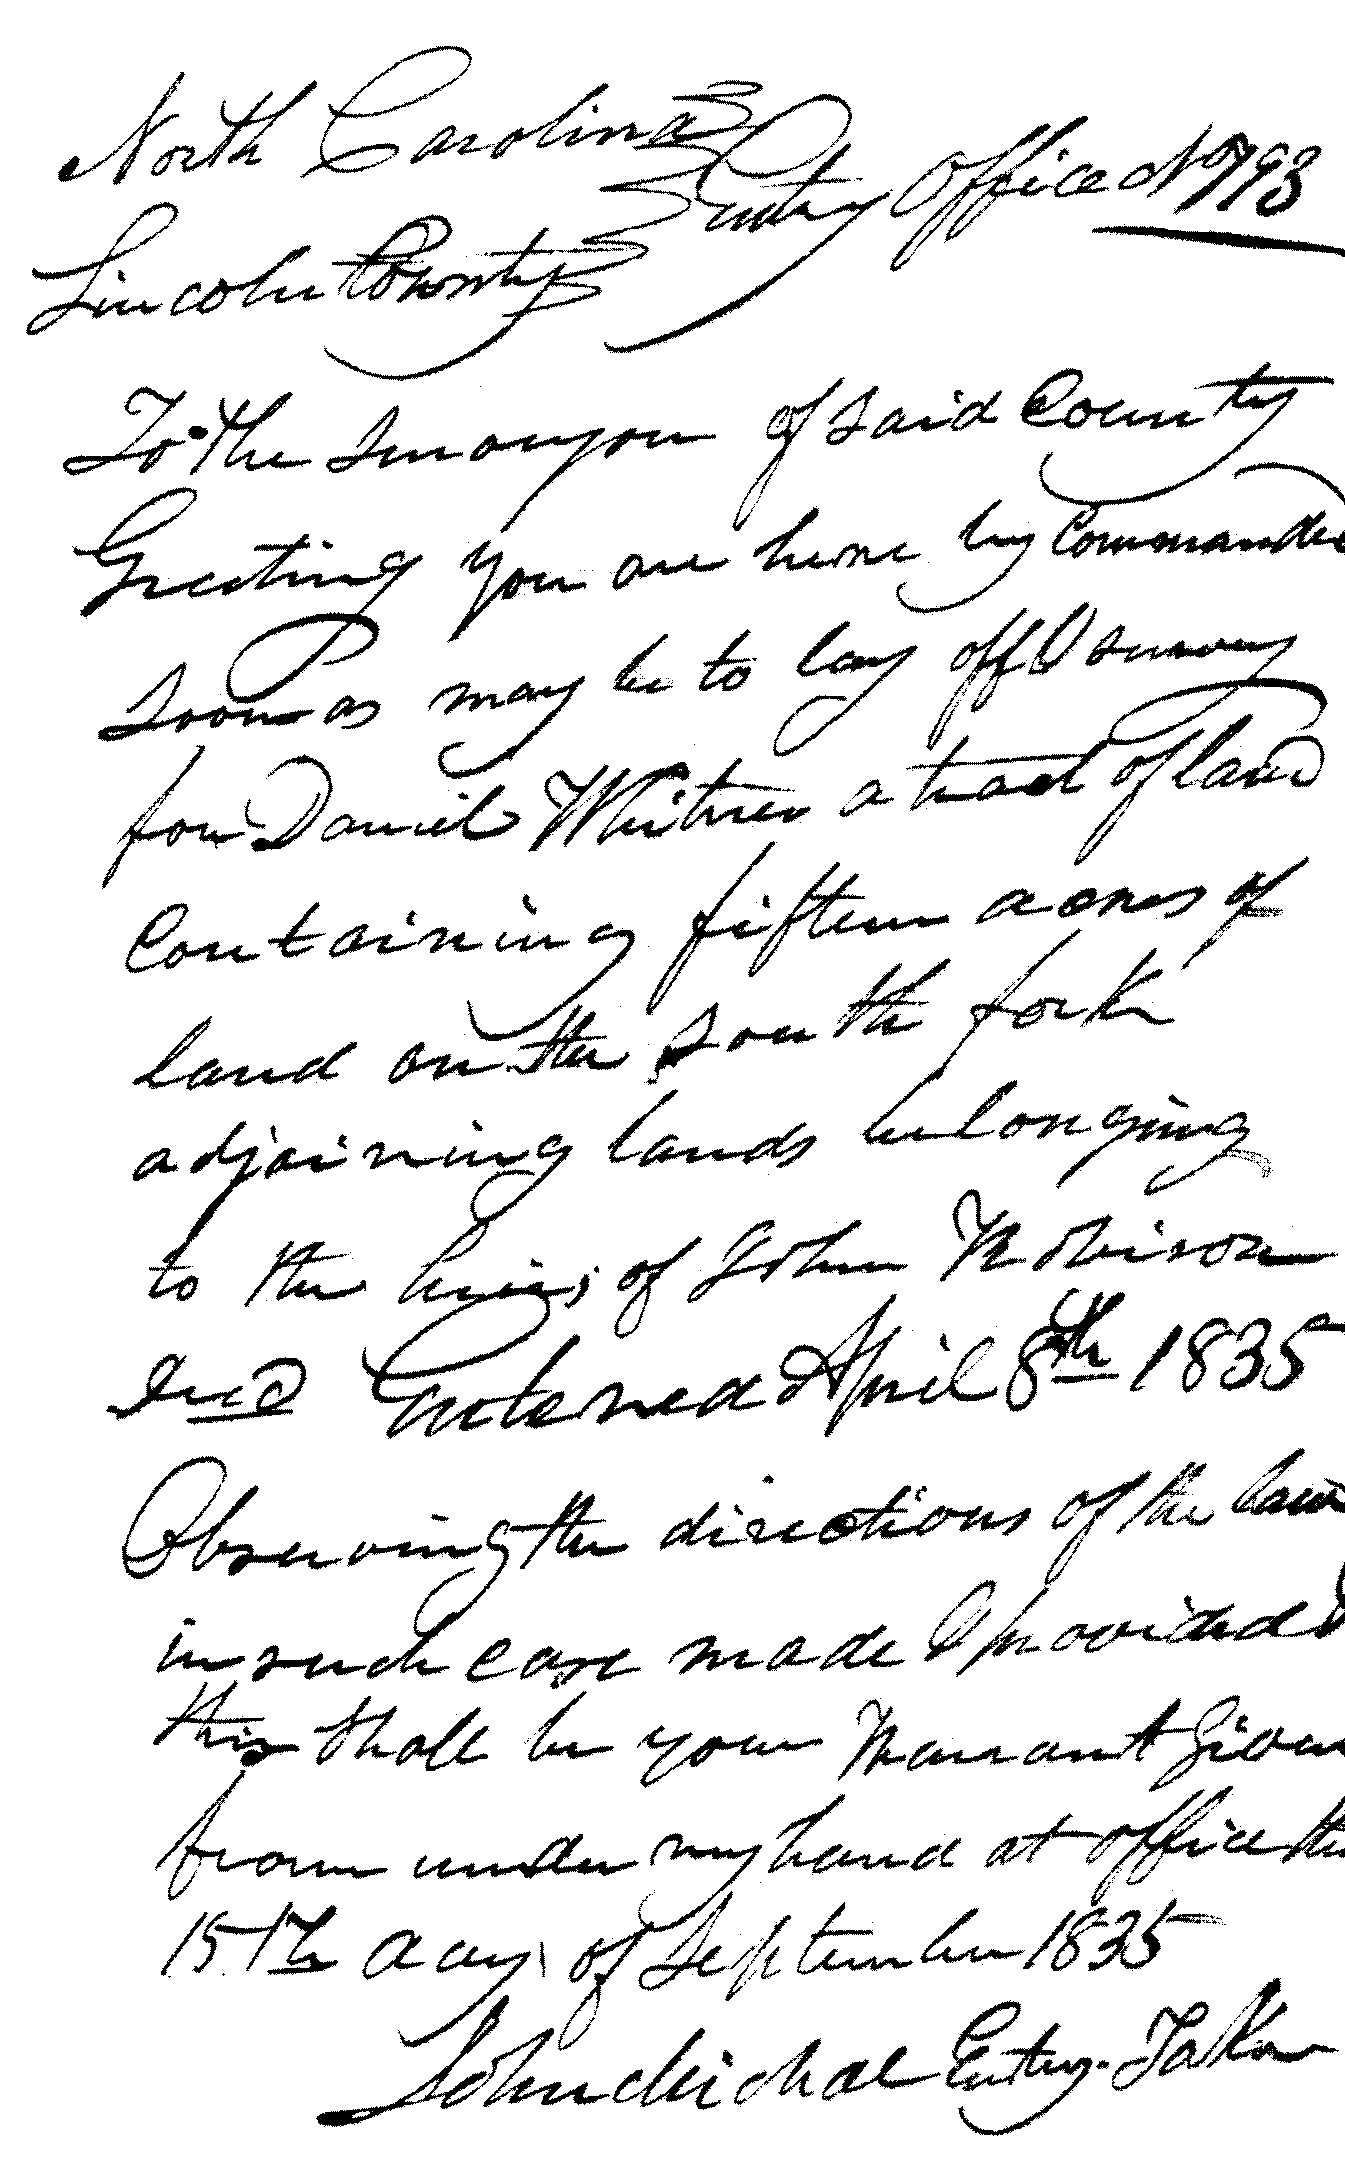 North Carolina
Entry Office No 793
Lincoln County
To the Survayor of said County
Greeting you are here by Commanded
soon as may be to lay off & survey
for Daniel Whitner a tract of land
Containing fifteen acres of
land on the South fork
adjoining lands belonging
to the heirs of John Robison
Decd Entered April 8th 1835
Observing the directions of the law
in such case made & provided
this shall be your Warrant Given
from under my hand at office the
15th day of September 1835
John Michal Entry-Taker